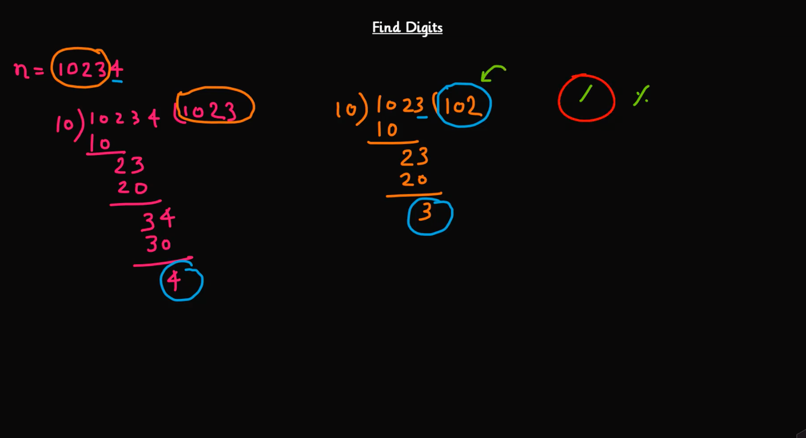 Find Digits
n = 10234
10) 10234 (1023
10
23
20
34
30
4
10) 1023 (102
10
23
20
3
/ %